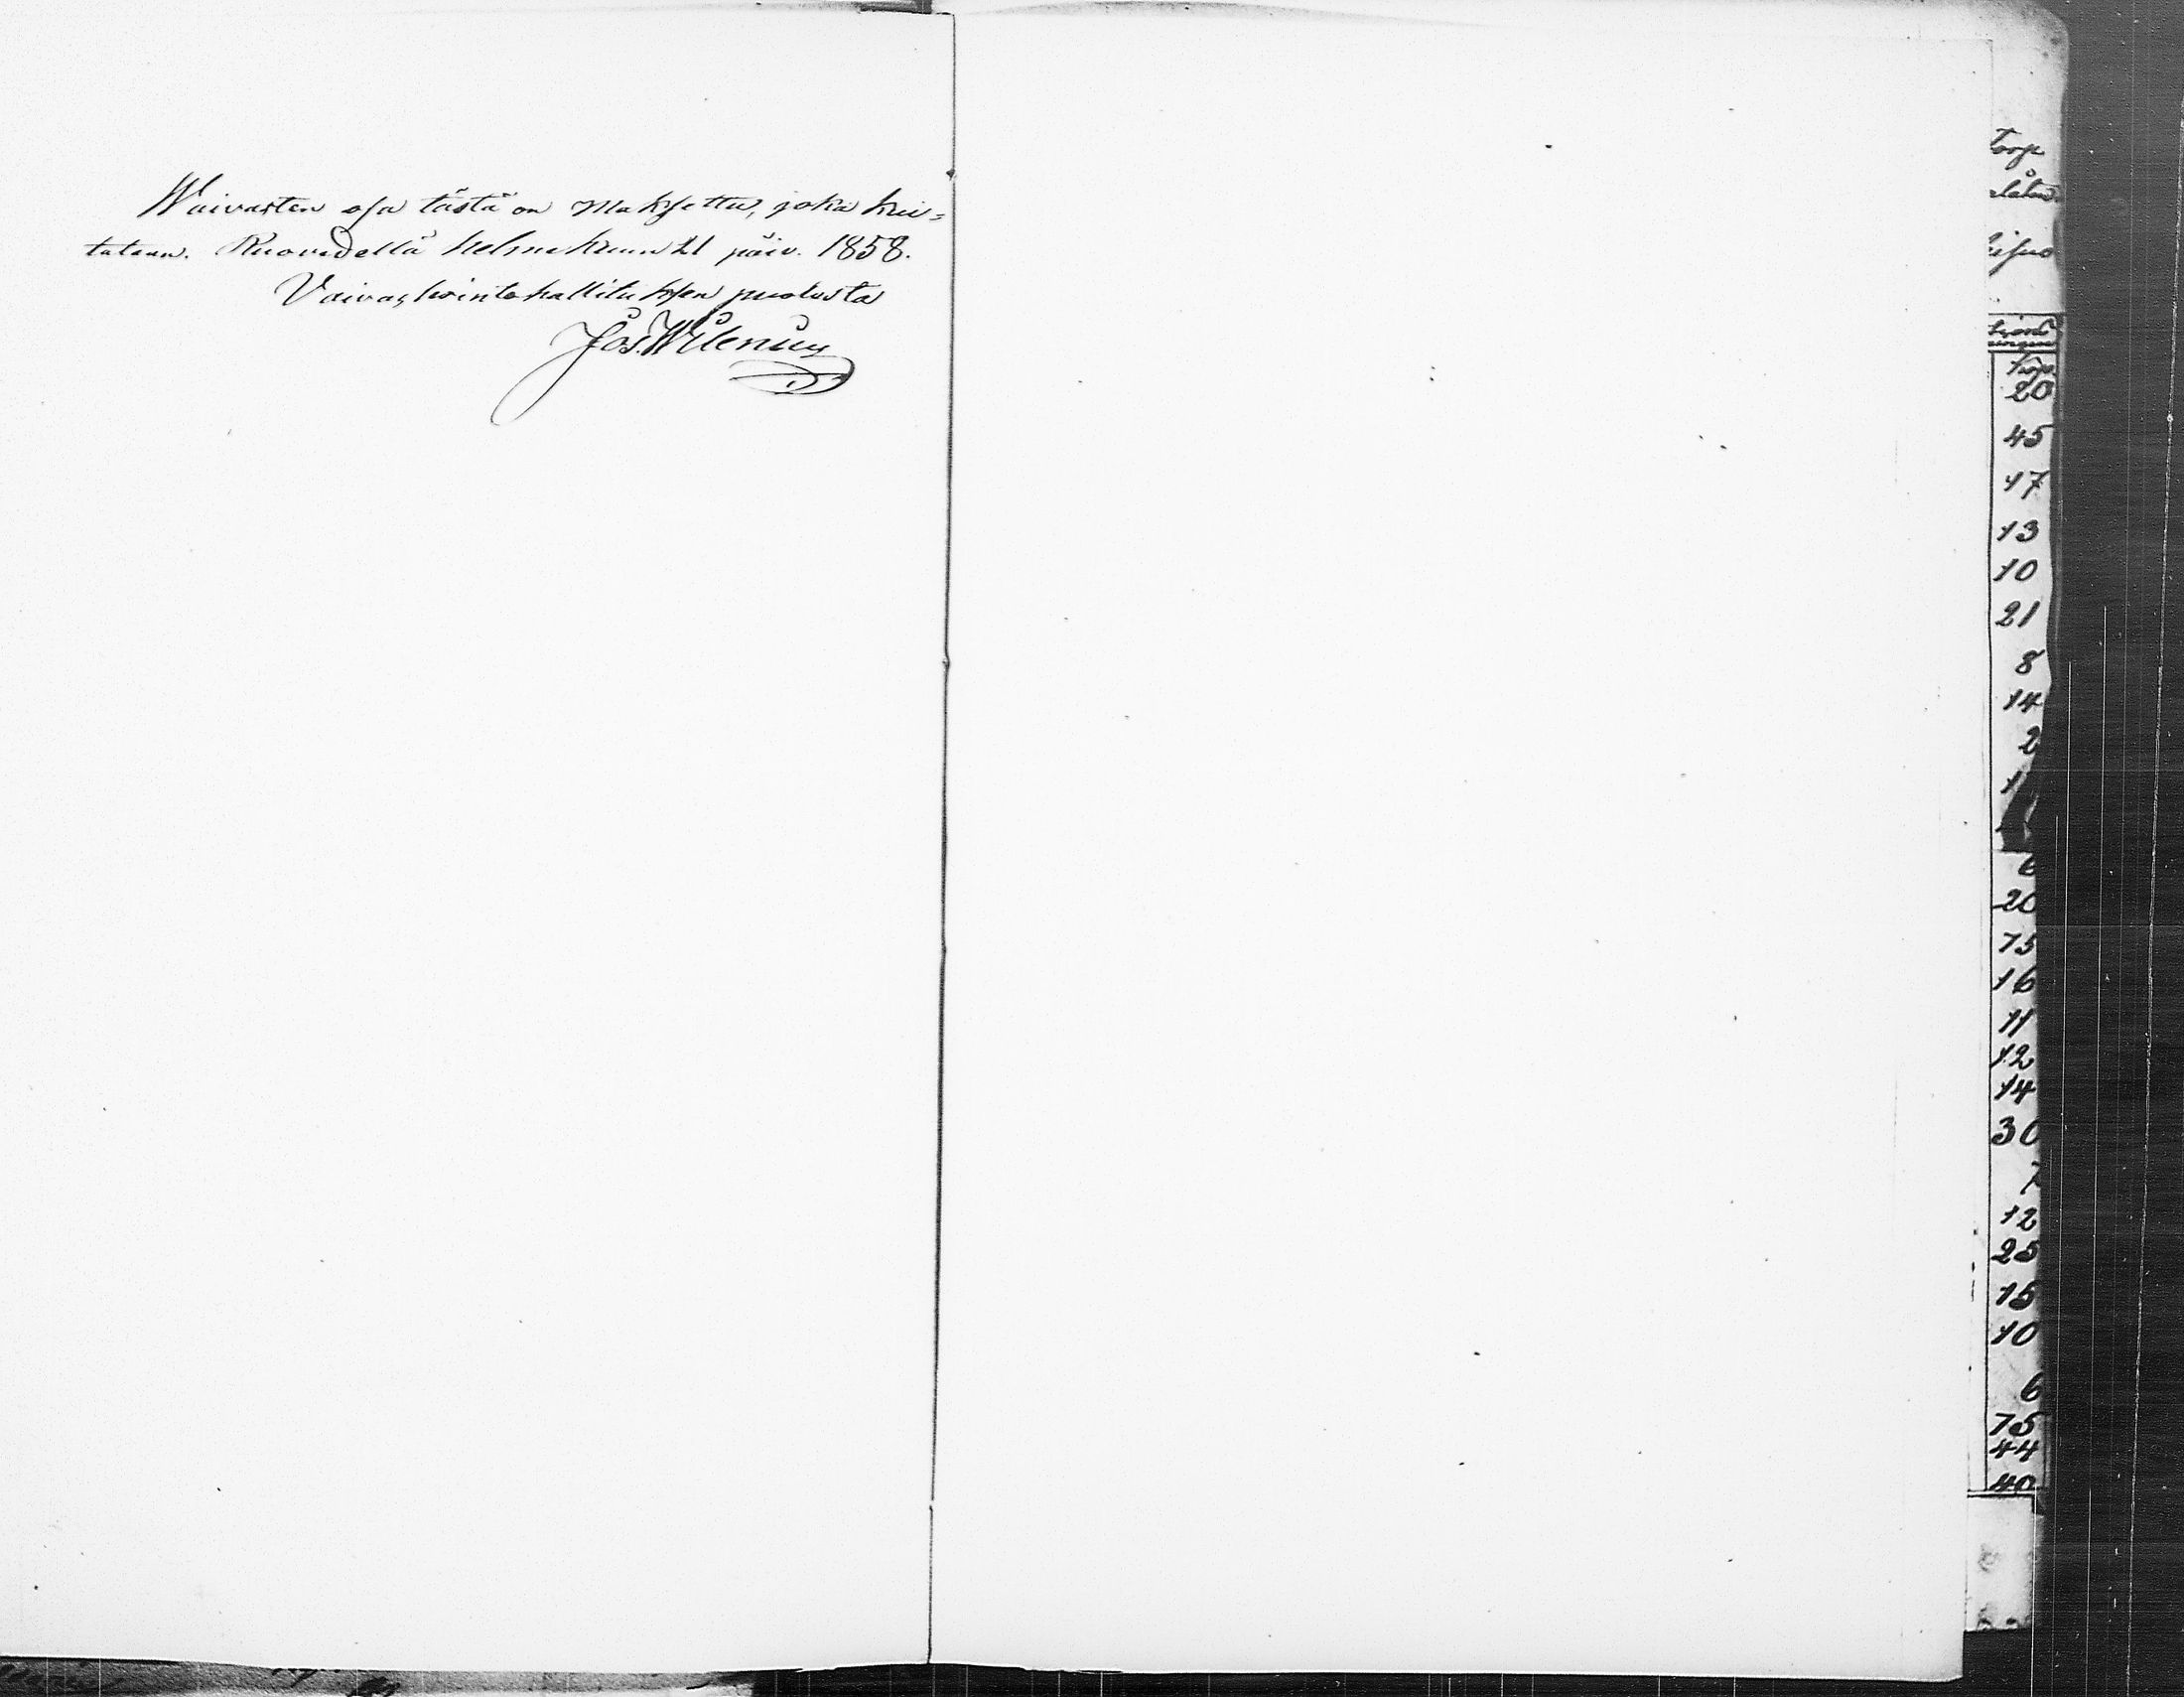 Waivasten osa tästä on Maksettu, joka kui=
tataan. Ruovedellä helmekuun 21 päiv. 1858.
Vaivashointohallituksen puolesta
Jos. Wilenius
torp
20
45
17
13
10
21
8
14
2
1
6
20
75
16
11
12
14
30
7
12
25
15
10
6
75
44
40